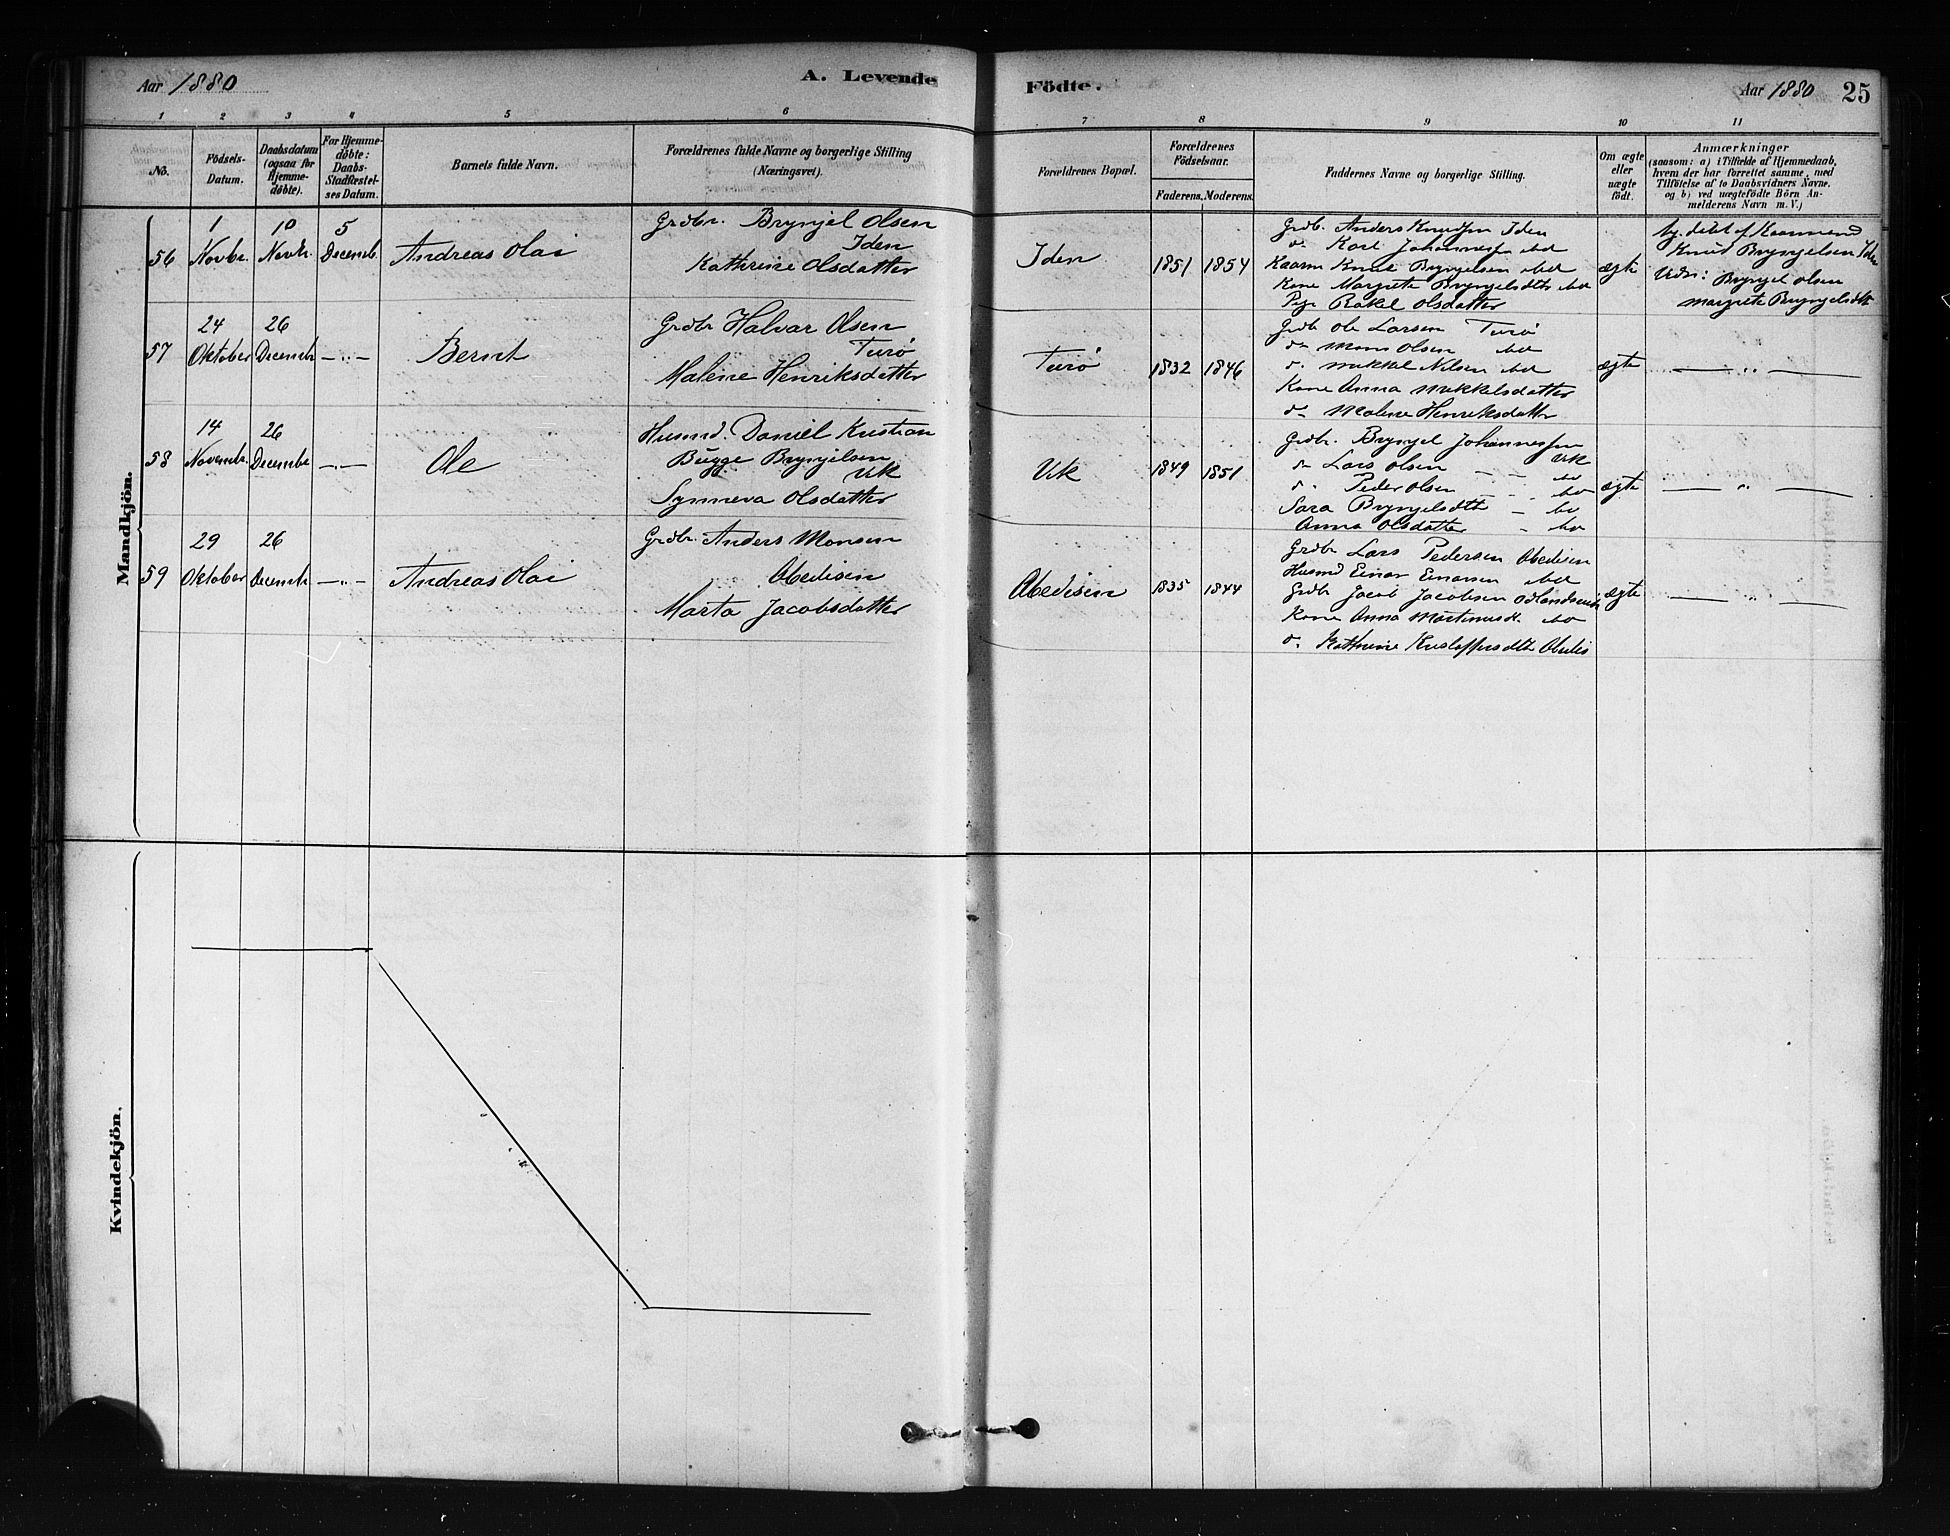 Aar 1880 A. Levende
Födte. Aar 1880 25
1 2 3 4 5 6 7 8 9 10 11
No.
Födsels-
Datum.
Daabsdatum
(ogsaa for
Hjemme-
döbte).
For Hjemme-
döbte:
Daabs-
Stadfæstel-
ses Datum.
Barnets fulde Navn.
Forældrenes fulde Navne og borgerlige Stilling
(Næringsvei).
Forældrenes Bopæl.
Forældrenes
Födselsaar.
Faderens. Moderens.
Faddernes Navne og borgerlige Stilling.
Om ægte
eller
uægte
födt.
Anmærkninger
(saasom: a) i Tilfælde af Hjemmedaab,
hvem der har forrettet samme, med
Tilföielse af to Daabsvidners Navne,
og b) ved uægtefödte Börn An-
melderens Navn m. V.)
Mandkjön.
56
1
Novbr.
10
Novbr.
5
Decemb.
Andreas Olai
Grdbr. Brynjel Olsen
Iden
Kathrine Olsdatter
Iden
1851 1854
Grdb. Anders Knudsen Iden
do Karl Johannessen ibd
Kaarm Knut Brynjelsen ibd
Kone Margrete Brynjelsdtr ibd
Pige Rakel Olsdatter
ægte
hj. døbt af Kaarmand
Knud Brynjelsen Iden
Vidn: Brynjel Olsen
Margrete Brynjelsdtr
57
24
Oktober
26
Decembr
— " —
Bernt
Grdbr Halvar Olsen
Turø
Malene Henriksdatter
Turø
1832 1846
Grdb Ole Larsen Turø
do Mons Olsen ibd
do Mikkel Nilsen ibd
Kone Anna Mikkelsdatter
do Malene Henriksdattr
ægte
— " —
58
14
Novembr.
26
Decembr
— " —
Ole
Husmd. Daniel Kristian
Bugge Brynjelsen
Urk
Synneva Olsdatter
Urk
1849 1851
Grdbr. Brynjel Johannessen
Urk
do Lars Olsen — ibd
do Peder Olsen — ibd
Sara Brynjelsdtr — ibd
Anna Olsdatter — ibd
ægte
— " —
59
29
Oktober
26
Decembr
— " —
Andreas Olai
Grdbr. Anders Monsen
Obedisen
Marta Jacobsdatter
Obedisen
1835 1844
Grdbr Lars Pedersen Obedisen
Husmd Einar Einarsen ibd
Grdbr Jacob Jacobsen
Kone Anna Martinusdtr ibd
do Kathrine Kristoffersdtr
ægte
— " —
Kvindekjön.